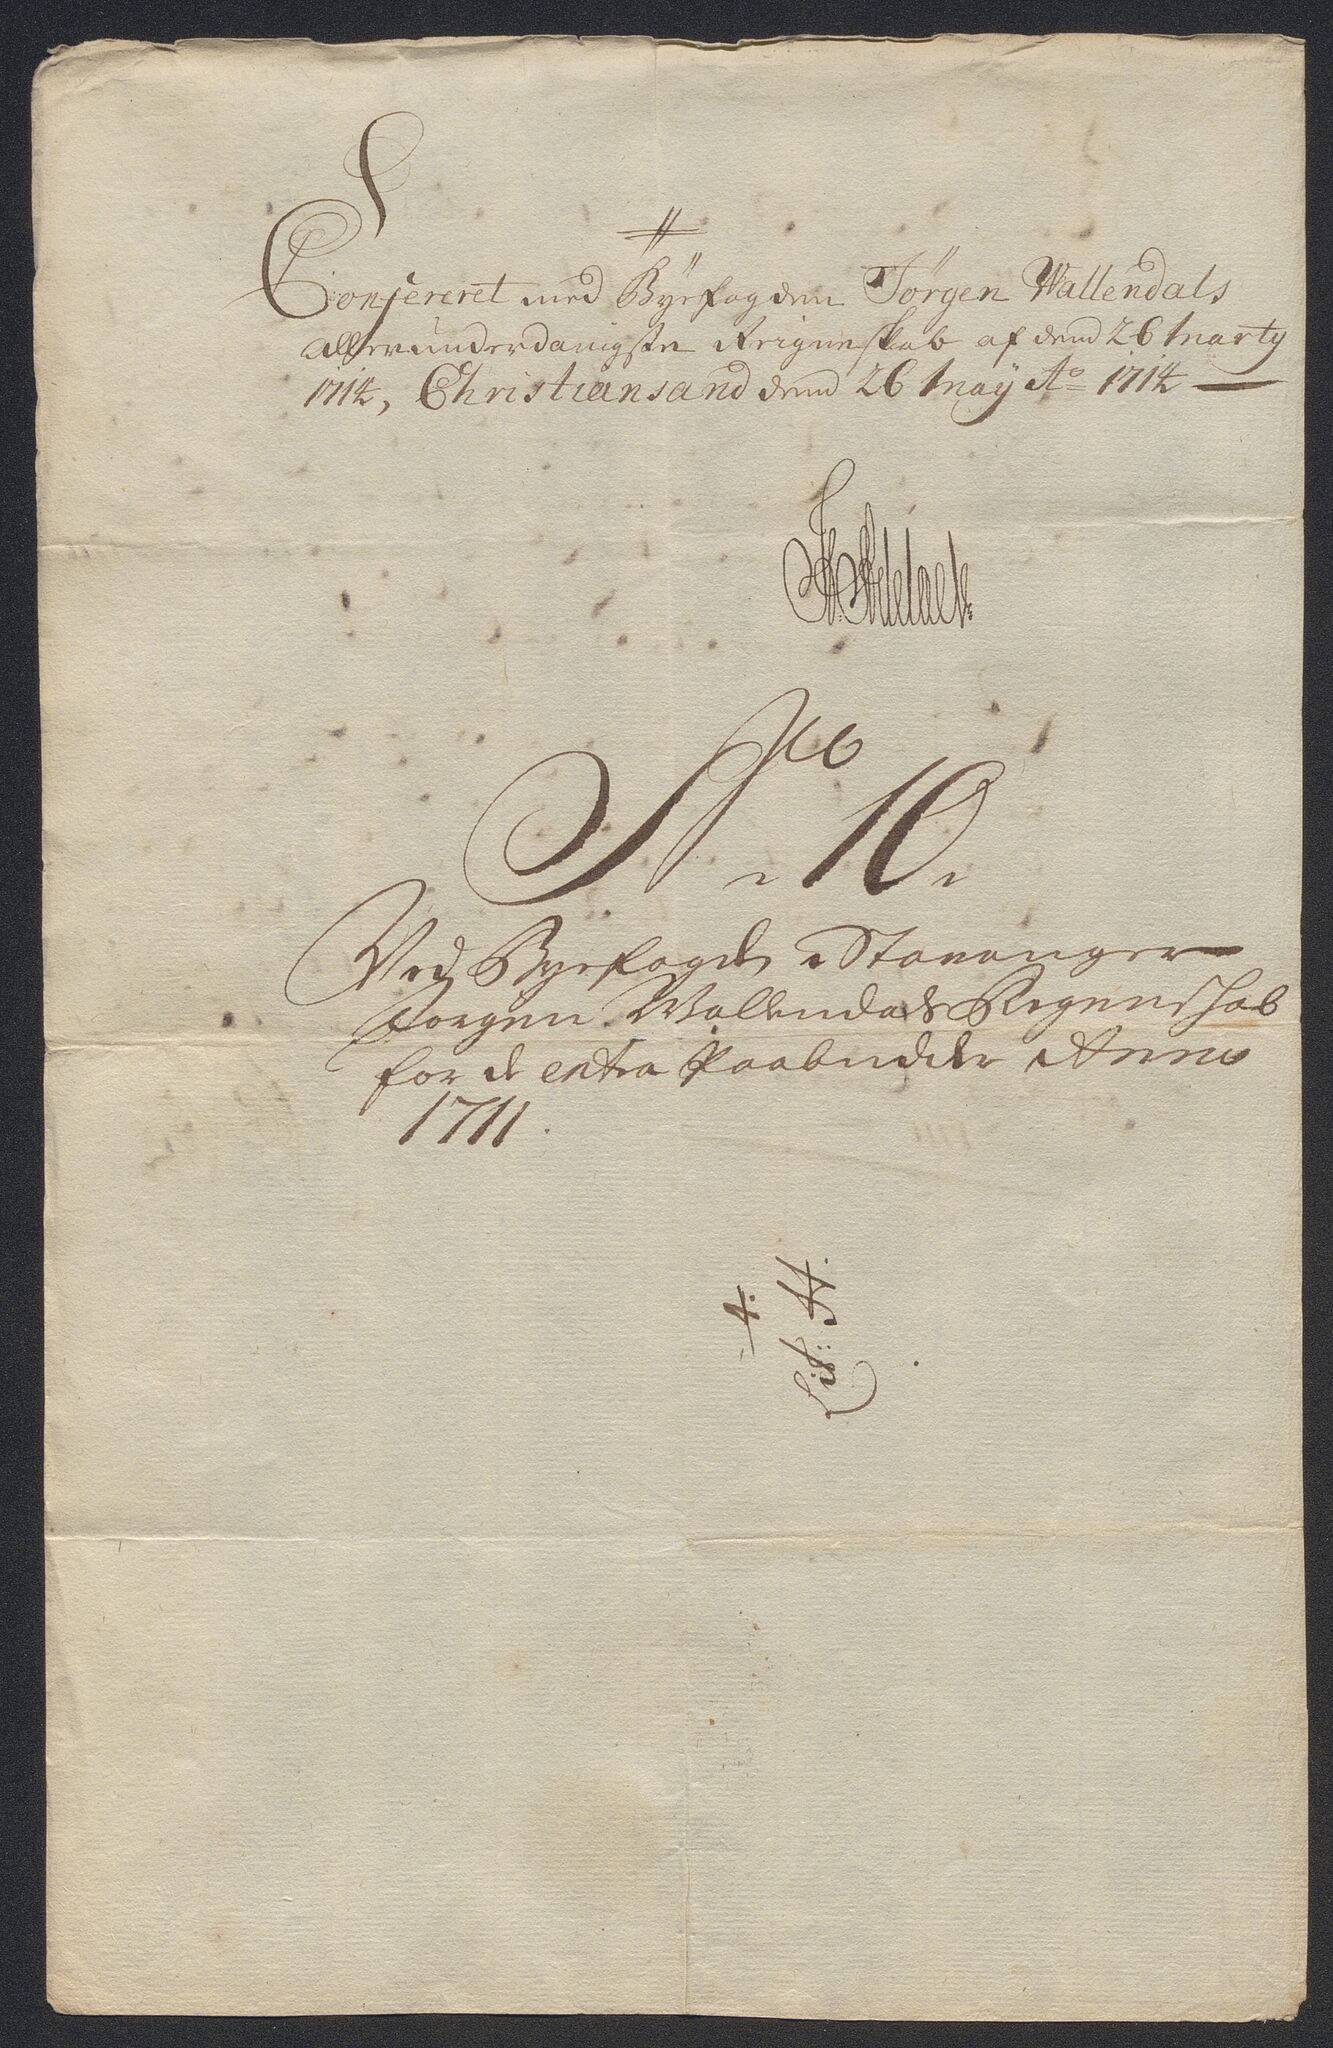 Confereret med Byefogden Jørgen Wallendals
allerunderdanigste Reigneskab af dend 26 Marty
1714, Christiansand dend 26 May Ao 1714
No 10
Ved Byefogden i Stavanger
Jørgen Wallendals Regenschab
for de extra Paabudder Anno
1711.
4.
Lit: H.